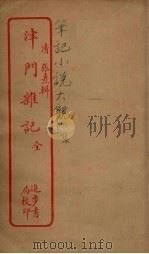 清 張燾輯
津門雜記 全
進步書局校印
筆記小說大觀